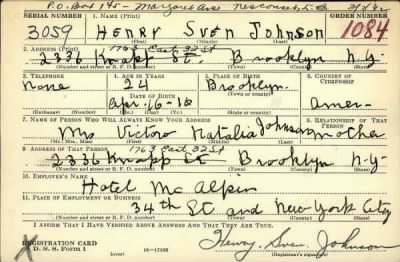 P.O. Box 145 - Margaret Ave Nesconset, L.I.
SERIAL NUMBER 1. NAME (Print) ORDER NUMBER
3059 HENRY SVEN JOHNSON 1084
(First) (Middle) (Last)
2. ADDRESS (Print) 1763 East 32 St
2336 Knapp St. Brooklyn N.Y.
(Number and street or R. F. D. number) (Town) (County) (State)
3. TELEPHONE 4. AGE IN YEARS 5. PLACE OF BIRTH 6. COUNTRY OF CITIZENSHIP
None 24 Brooklyn
DATE OF BIRTH (Town or county)
Apr. 16-16 Amer.
(Exchange) (Number) (Mo.) (Day) (Yr.) (State or country)
7. NAME OF PERSON WHO WILL ALWAYS KNOW YOUR ADDRESS 8. RELATIONSHIP OF THAT PERSON
Mrs Victor Natalia Johnson Mother
(Mr., Mrs., Miss) (First) (Middle) (Last)
9. ADDRESS OF THAT PERSON 1763 East 32 St
2336 Knapp St Brooklyn N-Y-
(Number and street or R. F. D. number) (Town) (County) (State)
10. EMPLOYER'S NAME
Hotel Mc Alpin
11. PLACE OF EMPLOYMENT OR BUSINESS
34th St. and New York City
(Number and street or R. F. D. number) (Town) (County) (State)
I AFFIRM THAT I HAVE VERIFIED ABOVE ANSWERS AND THAT THEY ARE TRUE.
REGISTRATION CARD
D. S. S. Form 1 16-17105 Henry. Sven. Johnson